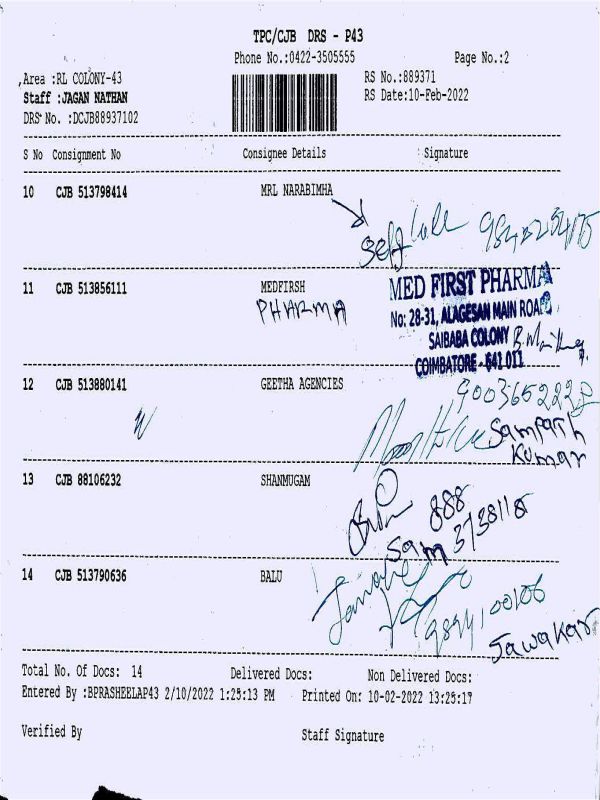 TPC/CJB DRS - P43
Phone No.:0422-3505555 Page No.:2
Area :RL COLONY-43 RS No.:889371
Staff :JAGAN NATHAN RS Date:10-Feb-2022
DRS No. :DCJB88937102
S No Consignment No Consignee Details Signature
10 CJB 513798414 MRL NARABIMHA
Self
11 CJB 513856111 MEDFIRSH MED FIRST PHARMA
PHARMA No: 28-31, ALAGESAN MAIN ROAD
SAIBABA COLONY
COIMBATORE - 641 011
12 CJB 513880141 GEETHA AGENCIES
Sampath
Kumar
13 CJB 88106232 SHANMUGAM
888
Sam
14 CJB 513790636 BALU
9894100106
Jawakar
Total No. Of Docs: 14 Delivered Docs: Non Delivered Docs:
Entered By :BPRASHEELAP43 2/10/2022 1:25:13 PM Printed On: 10-02-2022 13:25:17
Verified By Staff Signature